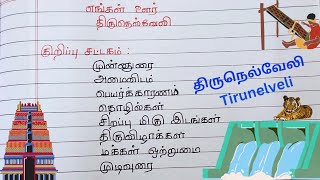 எங்கள் ஊர்
திருநெல்வேலி
குறிப்பு சட்டகம் :
முன்னுரை
அமைவிடம்
பெயர்க்காரணம்
தொழில்கள்
சிறப்பு மிகு இடங்கள்
திருவிழாக்கள்
மக்கள் ஒற்றுமை
முடிவுரை
திருநெல்வேலி
Tirunelveli